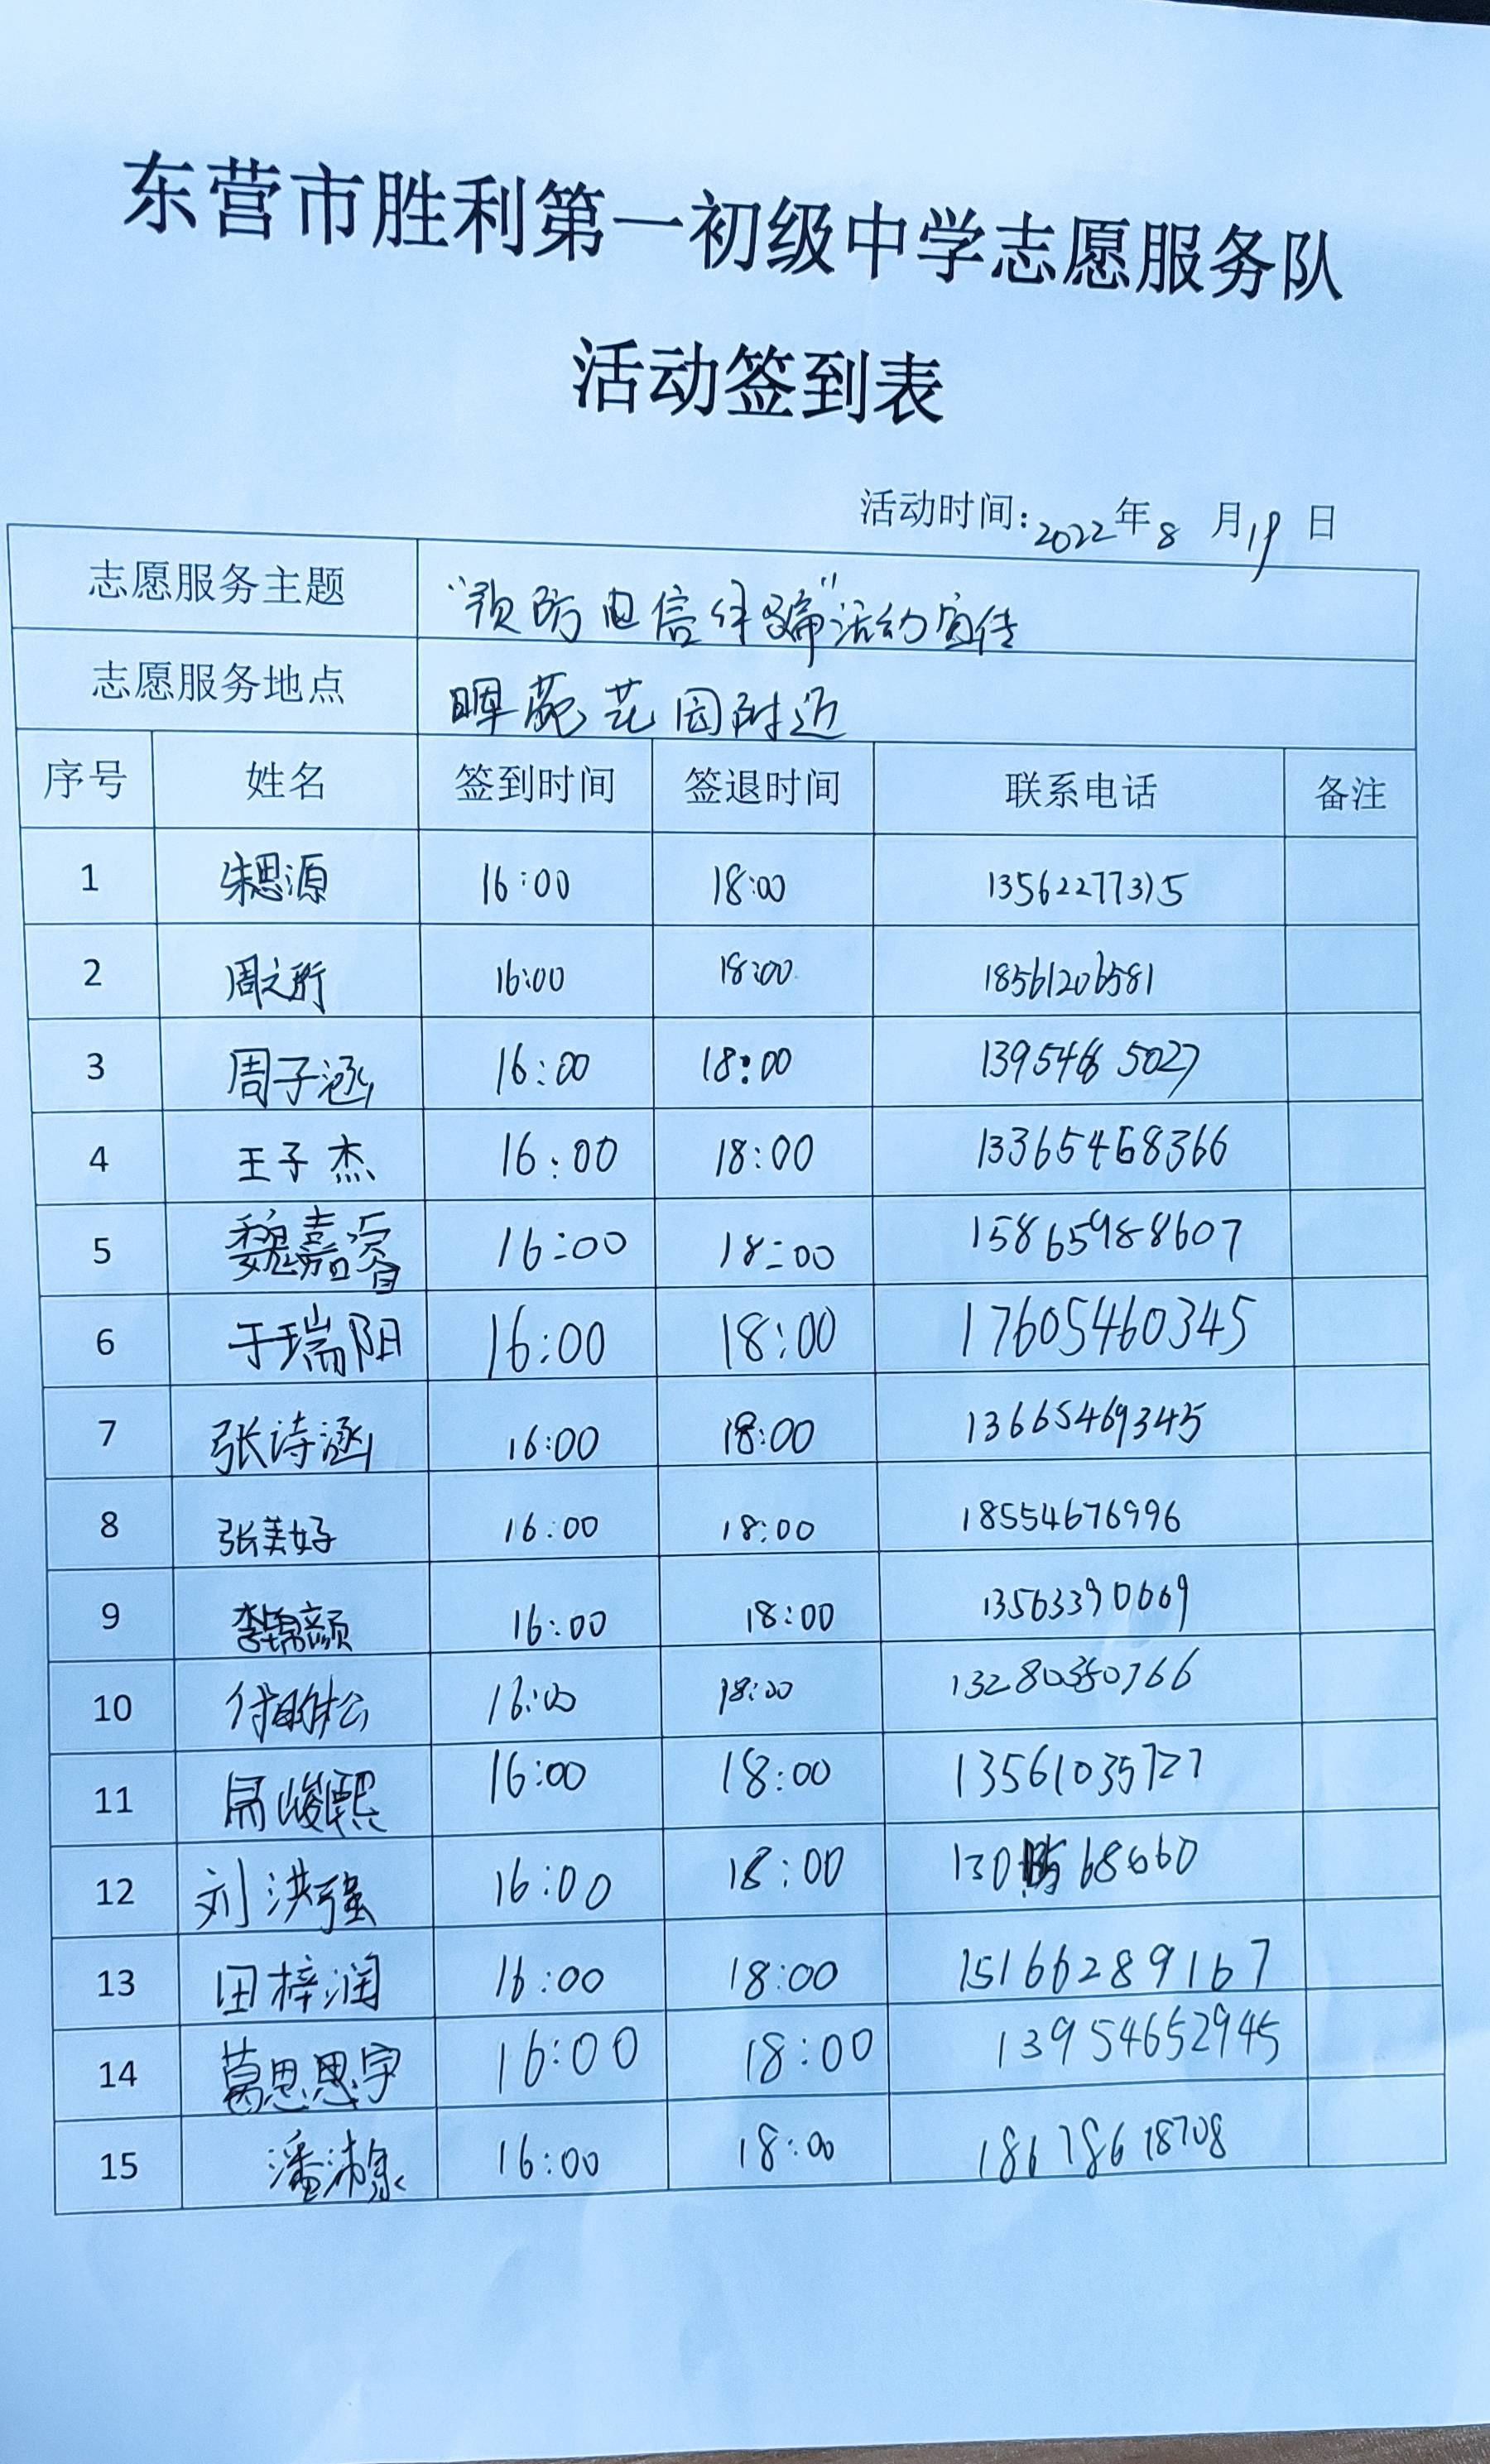 东营市胜利第一初级中学志愿服务队
活动签到表
活动时间：2022年8月19日
志愿服务主题 “预防电信诈骗”活动宣传
志愿服务地点 晖苑花园附近
序号 姓名 签到时间 签退时间 联系电话 备注
1 朱思源 16:00 18:00 13562277315
2 周之珩 16:00 18:00 18561206581
3 周子涵 16:00 18:00 13954665027
4 王子杰 16:00 18:00 13365468366
5 魏嘉睿 16:00 18:00 15865988607
6 于瑞阳 16:00 18:00 17605460345
7 张诗涵 16:00 18:00 13665469345
8 张美好 16:00 18:00 18554676996
9 李锦颜 16:00 18:00 13563390669
10 16:00 18:00
11 16:00 18:00 13561035727
12 刘洪强 16:00 18:00
13 田梓润 16:00 18:00 15166289167
14 葛思思宇 16:00 18:00 13954652945
15 16:00 18:00 18678618708